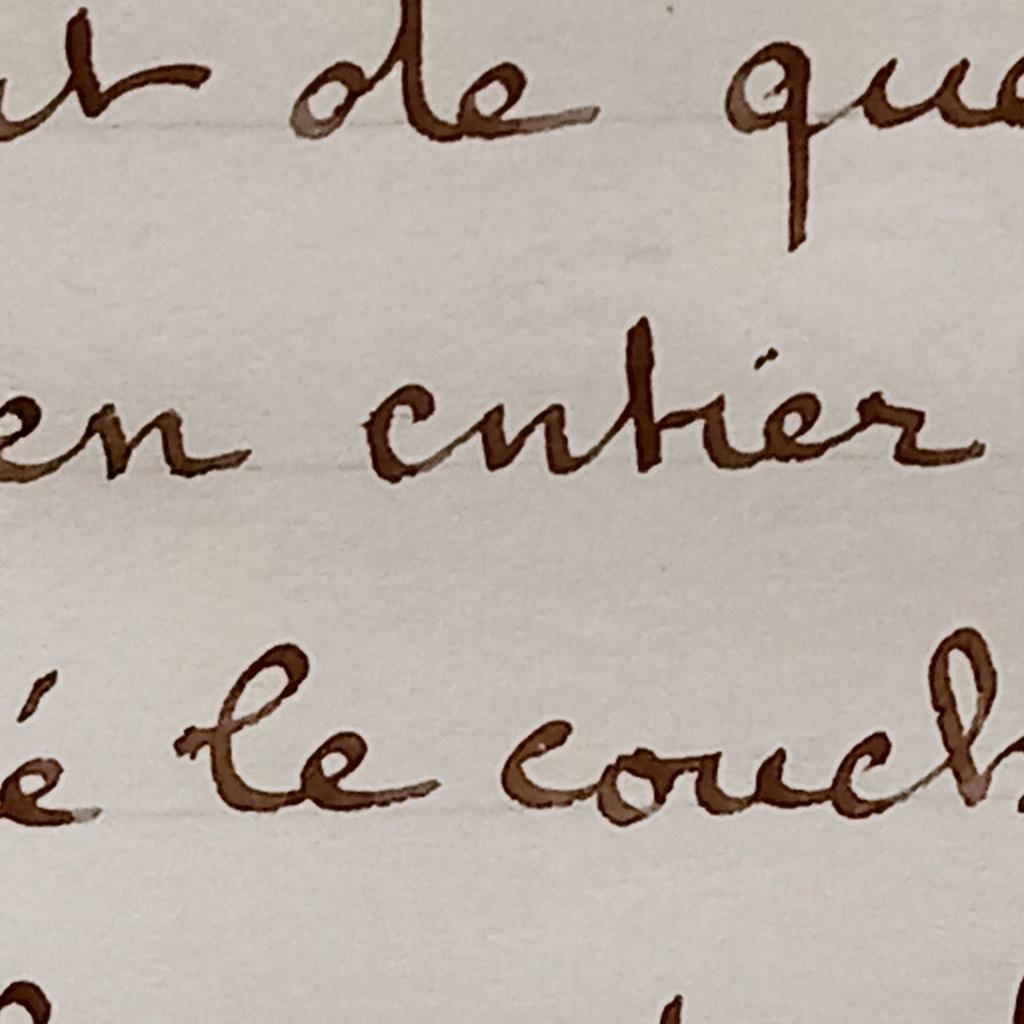 de que
en entier
é le couch